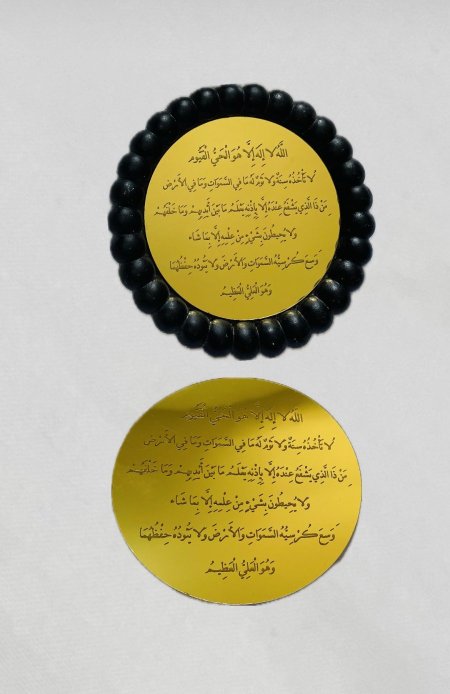 اللَّهُ لَا إِلَهَ إِلَّا هُوَ الْحَيُّ الْقَيُّومُ
لَا تَأْخُذُهُ سِنَةٌ وَلَا نَوْمٌ لَهُ مَا فِي السَّمَوَاتِ وَمَا فِي الْأَرْضِ
مَنْ ذَا الَّذِي يَشْفَعُ عِنْدَهُ إِلَّا بِإِذْنِهِ يَعْلَمُ مَا بَيْنَ أَيْدِيهِمْ وَمَا خَلْفَهُمْ
وَلَا يُحِيطُونَ بِشَيْءٍ مِنْ عِلْمِهِ إِلَّا بِمَا شَاءَ
وَسِعَ كُرْسِيُّهُ السَّمَوَاتِ وَالْأَرْضَ وَلَا يَئُودُهُ حِفْظُهُمَا
وَهُوَ الْعَلِيُّ الْعَظِيمُ
اللَّهُ لَا إِلَهَ إِلَّا هُوَ الْحَيُّ الْقَيُّومُ
لَا تَأْخُذُهُ سِنَةٌ وَلَا نَوْمٌ لَهُ مَا فِي السَّمَوَاتِ وَمَا فِي الْأَرْضِ
مَنْ ذَا الَّذِي يَشْفَعُ عِنْدَهُ إِلَّا بِإِذْنِهِ يَعْلَمُ مَا بَيْنَ أَيْدِيهِمْ وَمَا خَلْفَهُمْ
وَلَا يُحِيطُونَ بِشَيْءٍ مِنْ عِلْمِهِ إِلَّا بِمَا شَاءَ
وَسِعَ كُرْسِيُّهُ السَّمَوَاتِ وَالْأَرْضَ وَلَا يَئُودُهُ حِفْظُهُمَا
وَهُوَ الْعَلِيُّ الْعَظِيمُ